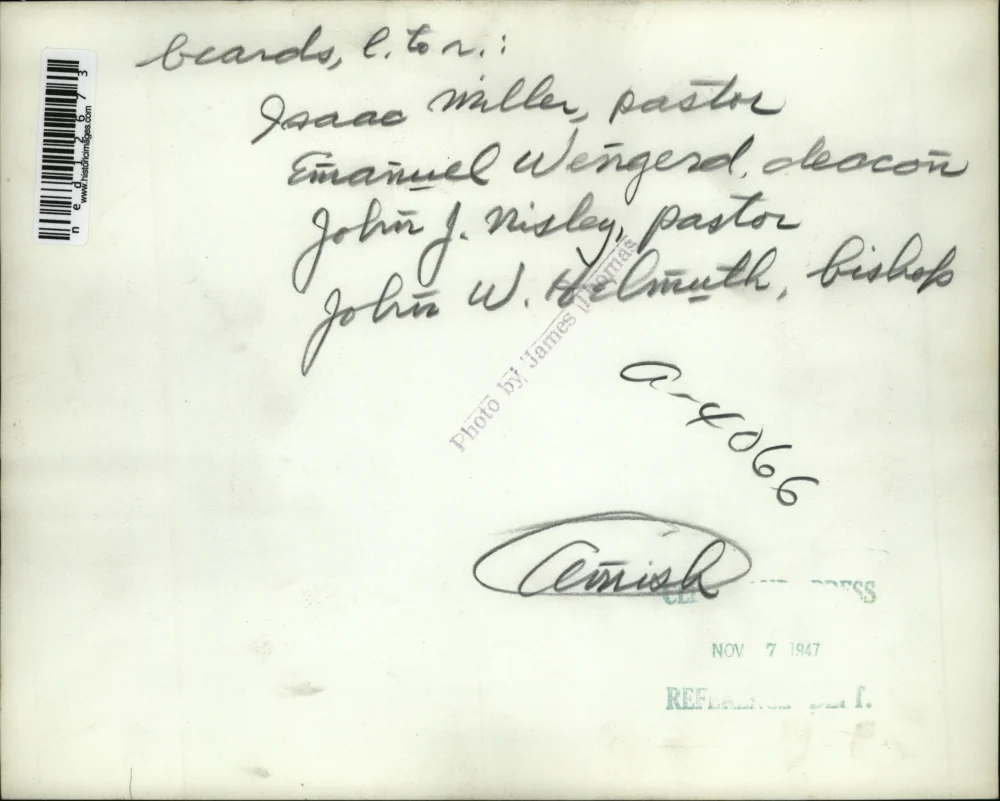 beards, l. to r.:
Isaac Miller, pastor
Emanuel Wengerd, deacon
John J. Nisley, pastor
John W. Helmuth, bishop
Photo by James Thomas
a-4066
Amish
PRESS
NOV 7 1947
www.historicimages.com
ned12673